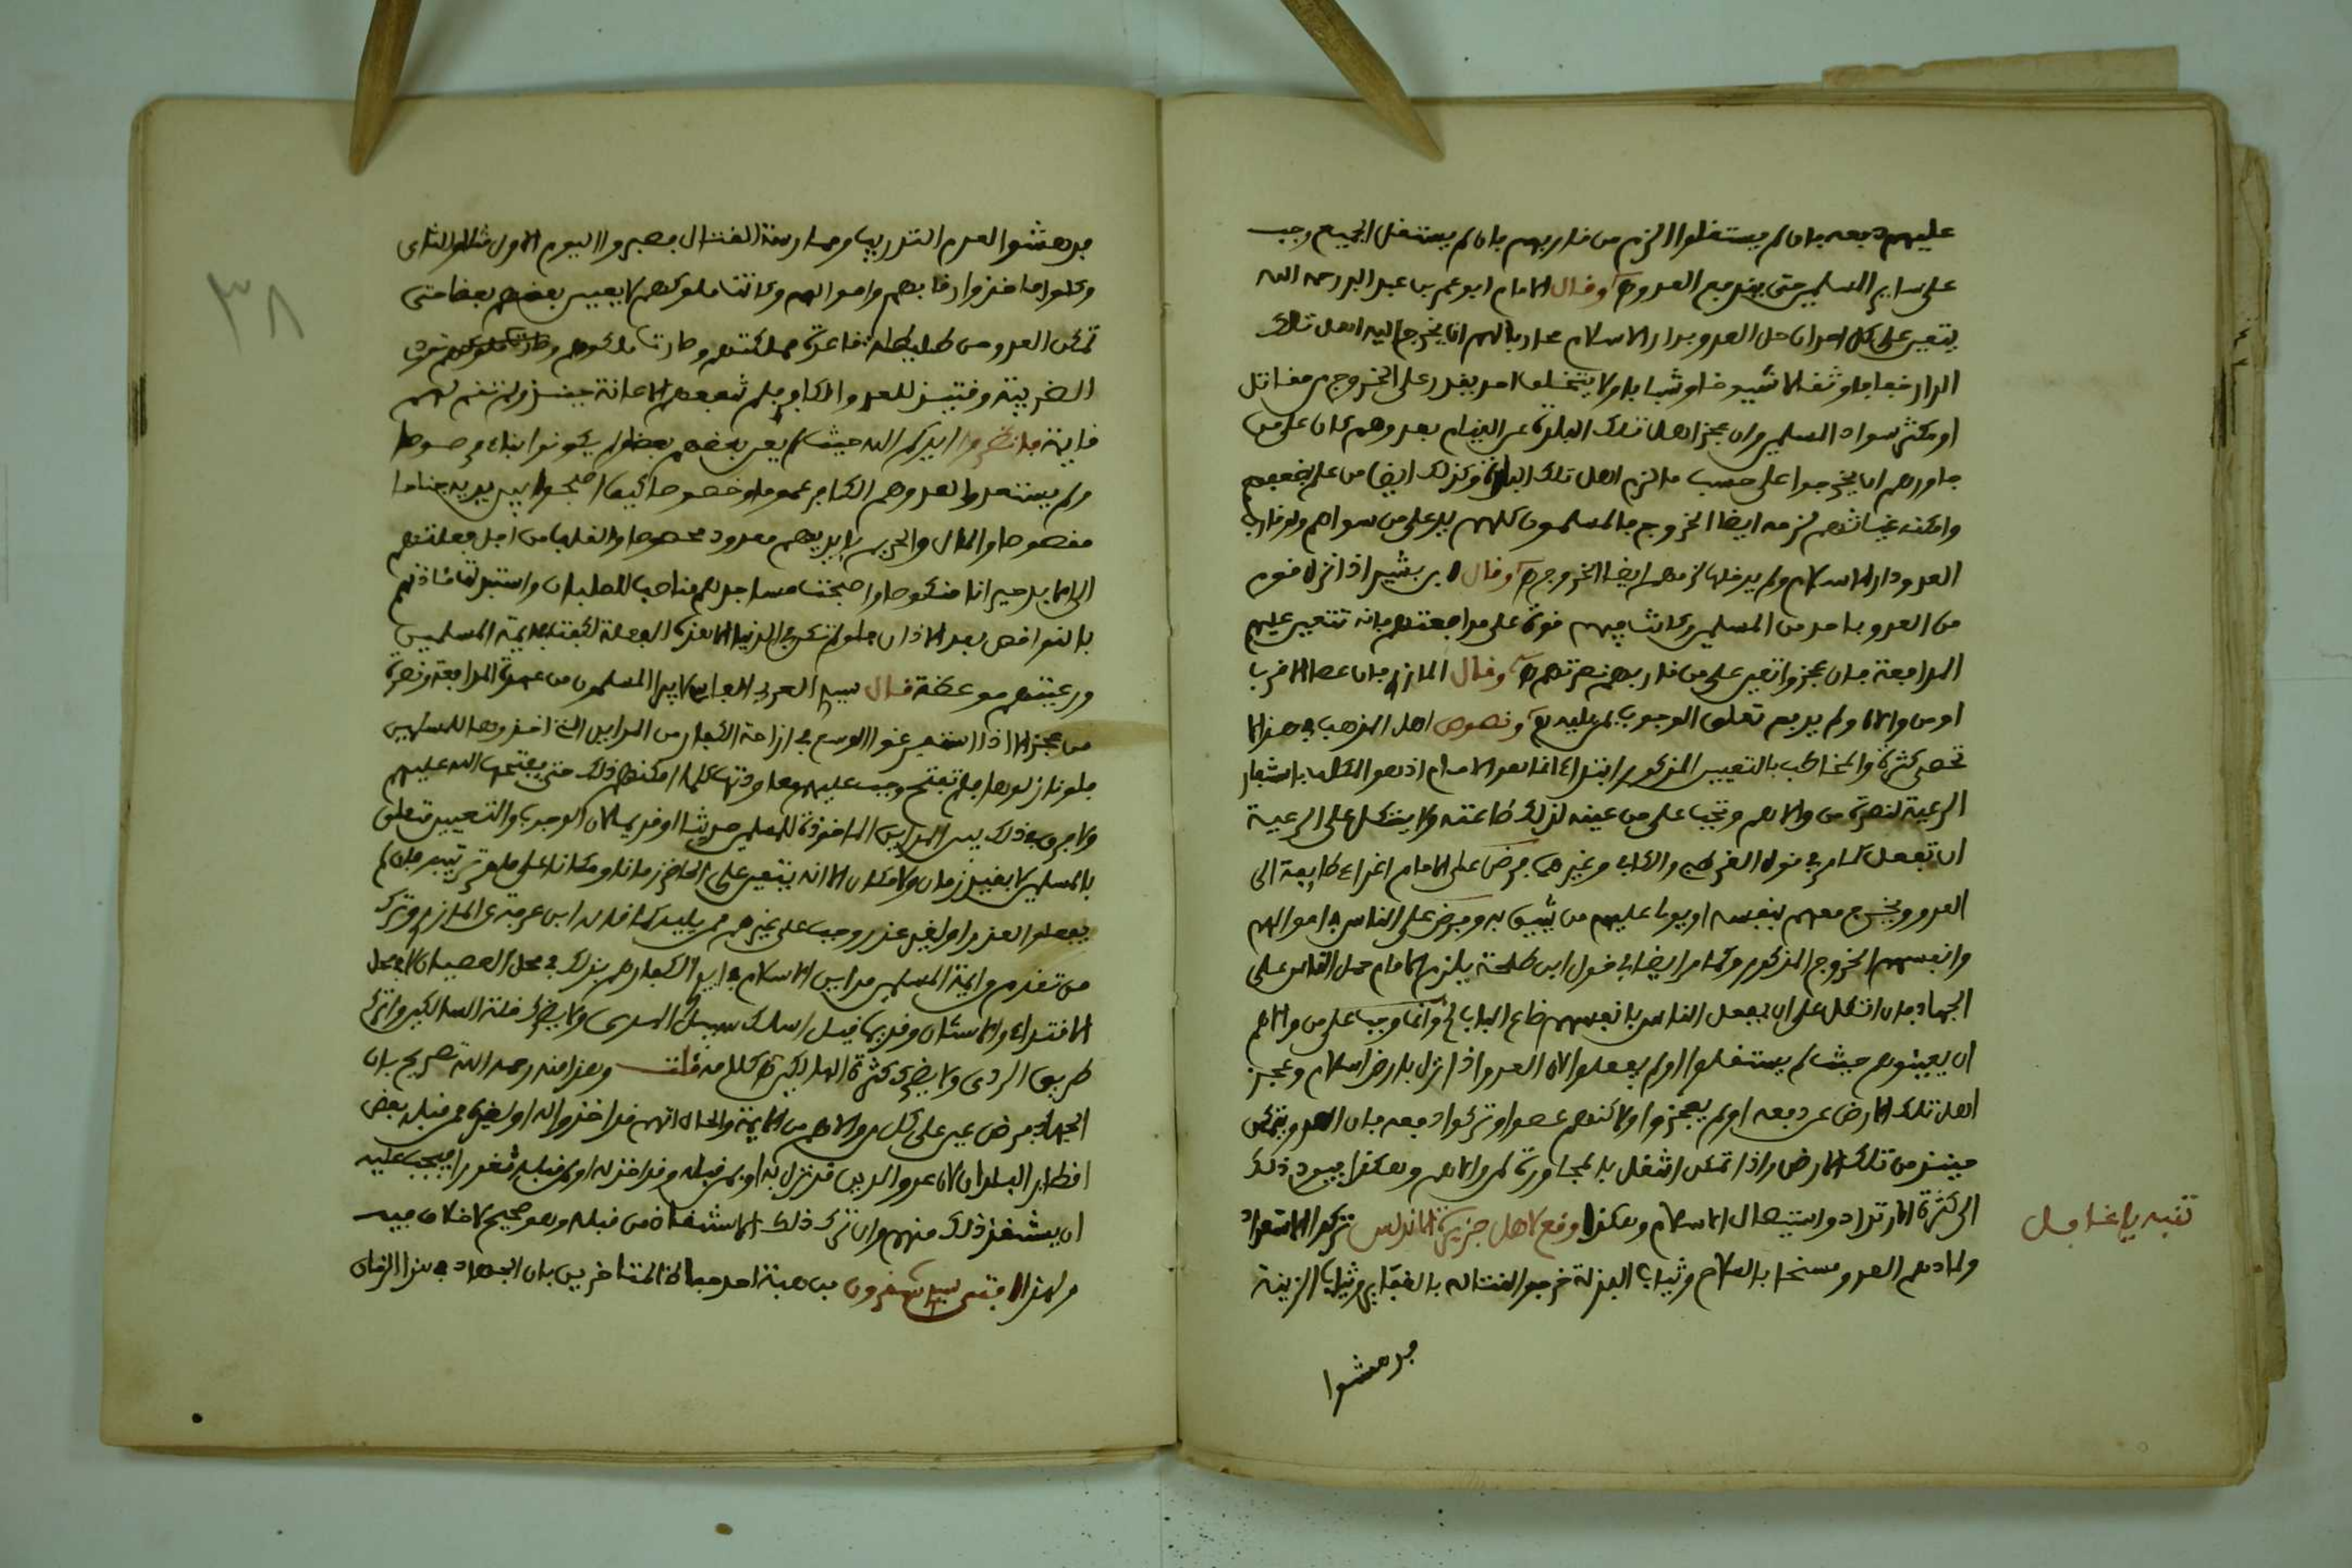 عليهم دفعه فان لم يستقلوا لزم من قاربهم فان لم يستقل الجميع وجب
على ساير المسلمين حتى يندفع العدو ه وقال الامام ابو عمر بن عبد البر رحمه الله
يتعين على كل احد ان حل العدو بدار الاسلام محاربا لهم ان يخرج اليه اهل تلك
الدار خفافا وثقالا شيوخا وشبابا ولا يتخلف احد يقدر على الخروج من مقاتل
او مكثر سواد المسلمين وان عجز اهل تلك البلدة عن القيام بعدوهم كان على من
جاورهم ان يخرجوا على حسب ما لزم اهل تلك البلدة وكذلك ايضا من علم بضعفهم
وامكنه غياثهم لزمه ايضا الخروج فالمسلمون كلهم يد على من سواهم ولو قارب
العدو دار الاسلام ولم يدخلها لزمهم ايضا الخروج ه وقال ابن بشير اذا نزل قوم
من العدو باحد من المسلمين وكانت فيهم قوة على مدافعتهم فانه تتعين عليهم
المدافعة فان عجزوا تعين على من قاربهم نصرتهم ه وقال المازري فان عصا الاقرب
ونصوص اهل المذهب في هذا لا
تحصى كثرة والمخاطب بالتعيين المذكور ابتداء انما هو الامام اذ هو المكلف باشغار
الرعية لنصرة من والاهم وتجب على من عينه لذلك طاعته ولا يتكل على الرعية
ان تفعل كما مر في قول القرطبي والكافي وغيرهما فرض على الامام اغزاء طايفة الى
العدو ويخرج معهم بنفسه او يولي عليهم من يثق به وفرض على الناس في اموالهم
وانفسهم الخروج المذكور وكما مر ايضا في قول ابن طلحة يلزم الامام حمل الناس على
الجهاد فان اتكل على ان يفعل الناس بانفسهم ضاع الباب وانما وجب على من والاهم
ان يعينوهم حيث لم يستقلوا او لم يفعلوا لان العدو اذا نزل بارض اسلام وعجز
اهل تلك الارض عن دفعه او لم يعجزوا ولاكنهم عصوا وتركوا دفعه فان العدو يتمكن
حينئذ من تلك الارض واذا تمكن اشتغل بالمجاورة لمن والاهم وهكذا فيود ذلك
الى كثرة الارتداد واستيصال الاسلام وهكذا وقع لاهل جزيرة الاندلس تركوا الاستعداد
ولما دهم العدو مسلحا بالسلاح وثياب البذلة خرجوا لقتاله بالقبايي وثياب الزينة
تنبه يا غافل
فدهشوا
٣٨
فدهشوا لعدم التدريب وممارسة القتال فصبروا اليوم الاول والثاني
وكلوا فاخذوا رقابهم واموالهم وكانت ملوكهم لا يعين بعضهم بعضا حتى
تمكن العدو من طليطلة قاعدة مملكتهم وصارت ملوكهم
الضريبة وقتئذ للعدو الكافر فلم تنفعهم الاعانة حينئذ ولم تغن لهم
فاية فانظروا ايدكم الله حيث لم يعن بعضهم بعضا ولم يكونوا بناء مرصوصا
ولم يستعدوا لعدوهم الكافر عموما وخصوصا كيف اصبحوا بين يديه جناحا
مقصوصا والمال والحريم بايديهم معدود محصوصا وانقلب من اجل غفلتهم
الى ما بدا حيرانا منكوصا واصبحت مساجدهم مناصب للصلبان واستبدلت مئاذنهم
بالنواقص بعد الاذان فلو لم تكن في الدنيا الا هذه الغفلة لكفت لايمة المسلمين
ورعيتهم موعظة قال سيدي العربي الفاسي لا يبرا المسلمون من عهدة المدافعة ونصرة
من عجز الا اذا استفرغوا الوسع في ازاحة الكفار من المداين التي اخذوها للمسلمين
فلو نازلوها فلم تفتح وجب عليهم معاودتها كلما امكنهم ذلك حتى يفتحها الله عليهم
ولا فرق في ذلك بين المداين الماخوذة للمسلمين حديثا او قديما لان الوجوب والتعيين متعلق
بالمسلمين لا بقيد زمان ولا مكان الا انه يتعين على الحاضر زمانا ومكانا على ما مر ترتيبه فان لم
يفعلوا لعذر او لغير عذر وجب على غيرهم ممن يليه كما قاله ابن عرفة عن المازري وترك
من تقدم من ايمة المسلمين مداين الاسلام في ايدي الكفار هم بذلك في محل العصيان لا في محل
الاقتداء والاستنان وقديما قيل اسلك سبيل الهدى ولا يضرك قلة السالكين واترك
طريق الردى ولا يضرك كثرة الهالكين ه كلامه قلت وهذا منه رحمه الله تصريح بان
الجهاد فرض عين على كل من والاهم من الايمة والحال انهم قد اخذوا له او لغيره من قبله بعض
اقطار البلدان لان عدو الدين قد نزل به او بمن قبله وقد اخذ له او لمن قبله ثغورا فيجب عليه
ان يستنقذ ذلك منهم وان ترك ذلك الاستنقاذ من قبله وهو صحيح لا خلاف فيه
ولهذا افتى سيدي شقرون بن هبة احد جهابذة المتاخرين بان الجهاد في هذا الزمان